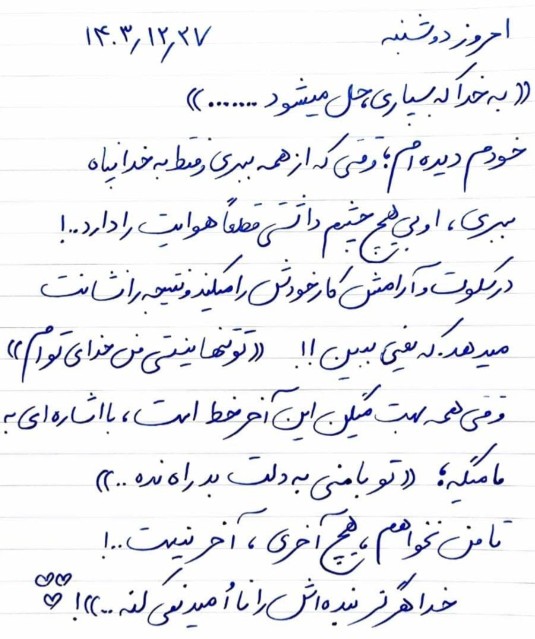 امروز دوشنبه ۱۴۰۳/۱۲/۲۷
((به خدا که بسپاری، حل میشود .......))
خودم دیده‌ام؛ وقتی که از همه ببری و فقط به خدا پناه
ببری، او بی هیچ چشم داشتی قطعاً هوایت را دارد..!
در سکوت و آرامش کار خودش را میکند و نتیجه را نشانت
میدهد. که یعنی ببین!! ((تو تنها نیستی من خدای توام))
وقتی همه بهت میگن این آخر خط است، با اشاره‌ای به
ما میگه؛ ((تو با منی به دلت بد راه نده..))
تا من نخواهم، هیچ آخری، آخر نیست..!
خدا هرگز بنده‌اش را ناأمید نمی کنه..))!